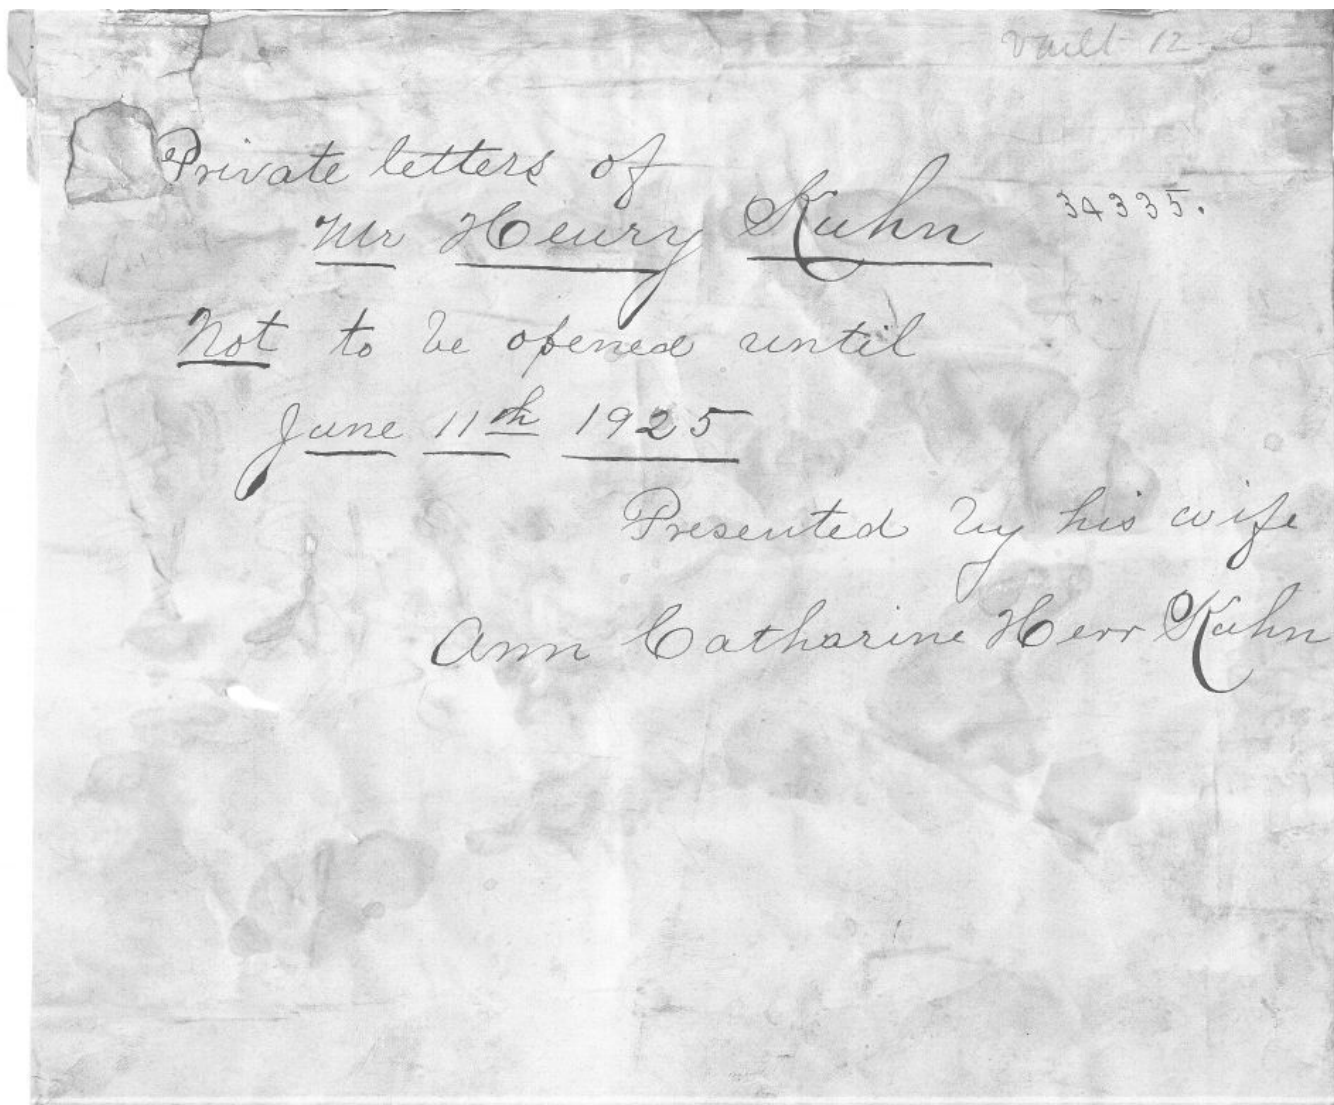 Vault 12
Private letters of
Mr Henry Kuhn
34335.
Not to be opened until
June 11th 1925
Presented by his wife
Ann Catharine Herr Kuhn